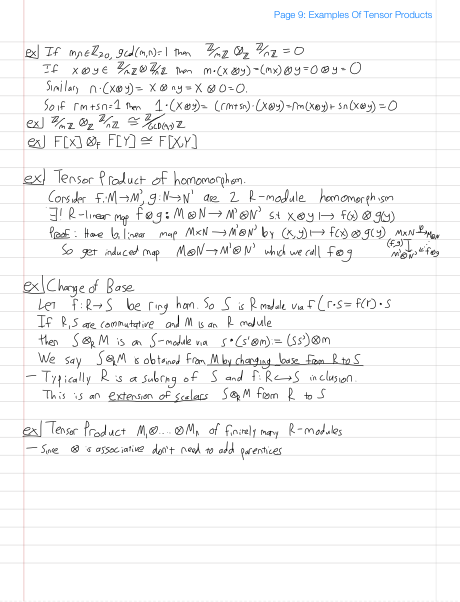 Page 9: Examples Of Tensor Products
ex| If m,n∈ℤ≥0, gcd(m,n)=1 then ℤ/mℤ ⊗ℤ ℤ/nℤ = 0
If x⊗y ∈ ℤ/mℤ⊗ℤ/nℤ then m·(x⊗y)=(mx)⊗y=0⊗y=0
Similarly n·(x⊗y)= x⊗ny=x⊗0=0.
So if rm+sn=1 then 1·(x⊗y)= (rm+sn)·(x⊗y)=rm(x⊗y)+sn(x⊗y)=0
ex| ℤ/mℤ ⊗ℤ ℤ/nℤ ≅ ℤ/GCD(m,n)ℤ
ex| F[X]⊗F F[Y] ≅ F[X,Y]
ex| Tensor Product of homomorphism.
Consider f:M→M', g:N→N' are 2 R-module homomorphism
∃! R-linear map f⊗g: M⊗N→M'⊗N' s.t x⊗y ↦ f(x)⊗g(y)
Proof: Have bilinear map M×N→M'⊗N' by (x,y)↦f(x)⊗g(y) M×N→M⊗N
So get induced map M⊗N→M'⊗N' which we call f⊗g (f,g)↓ M'⊗N' f⊗g
ex| Change of Base
Let f:R→S be ring hom. So S is R module via f (r·s=f(r)·s
If R,S are commutative and M is an R module
then S⊗RM is an S-module via s·(s'⊗m)=(ss')⊗m
We say S⊗RM is obtained from M by changing base from R to S
– Typically R is a subring of S and f:R↪S inclusion.
This is an extension of scalars S⊗RM from R to S
ex| Tensor Product M₁⊗....⊗Mₙ of finitely many R-modules
– Since ⊗ is associative don't need to add parentices